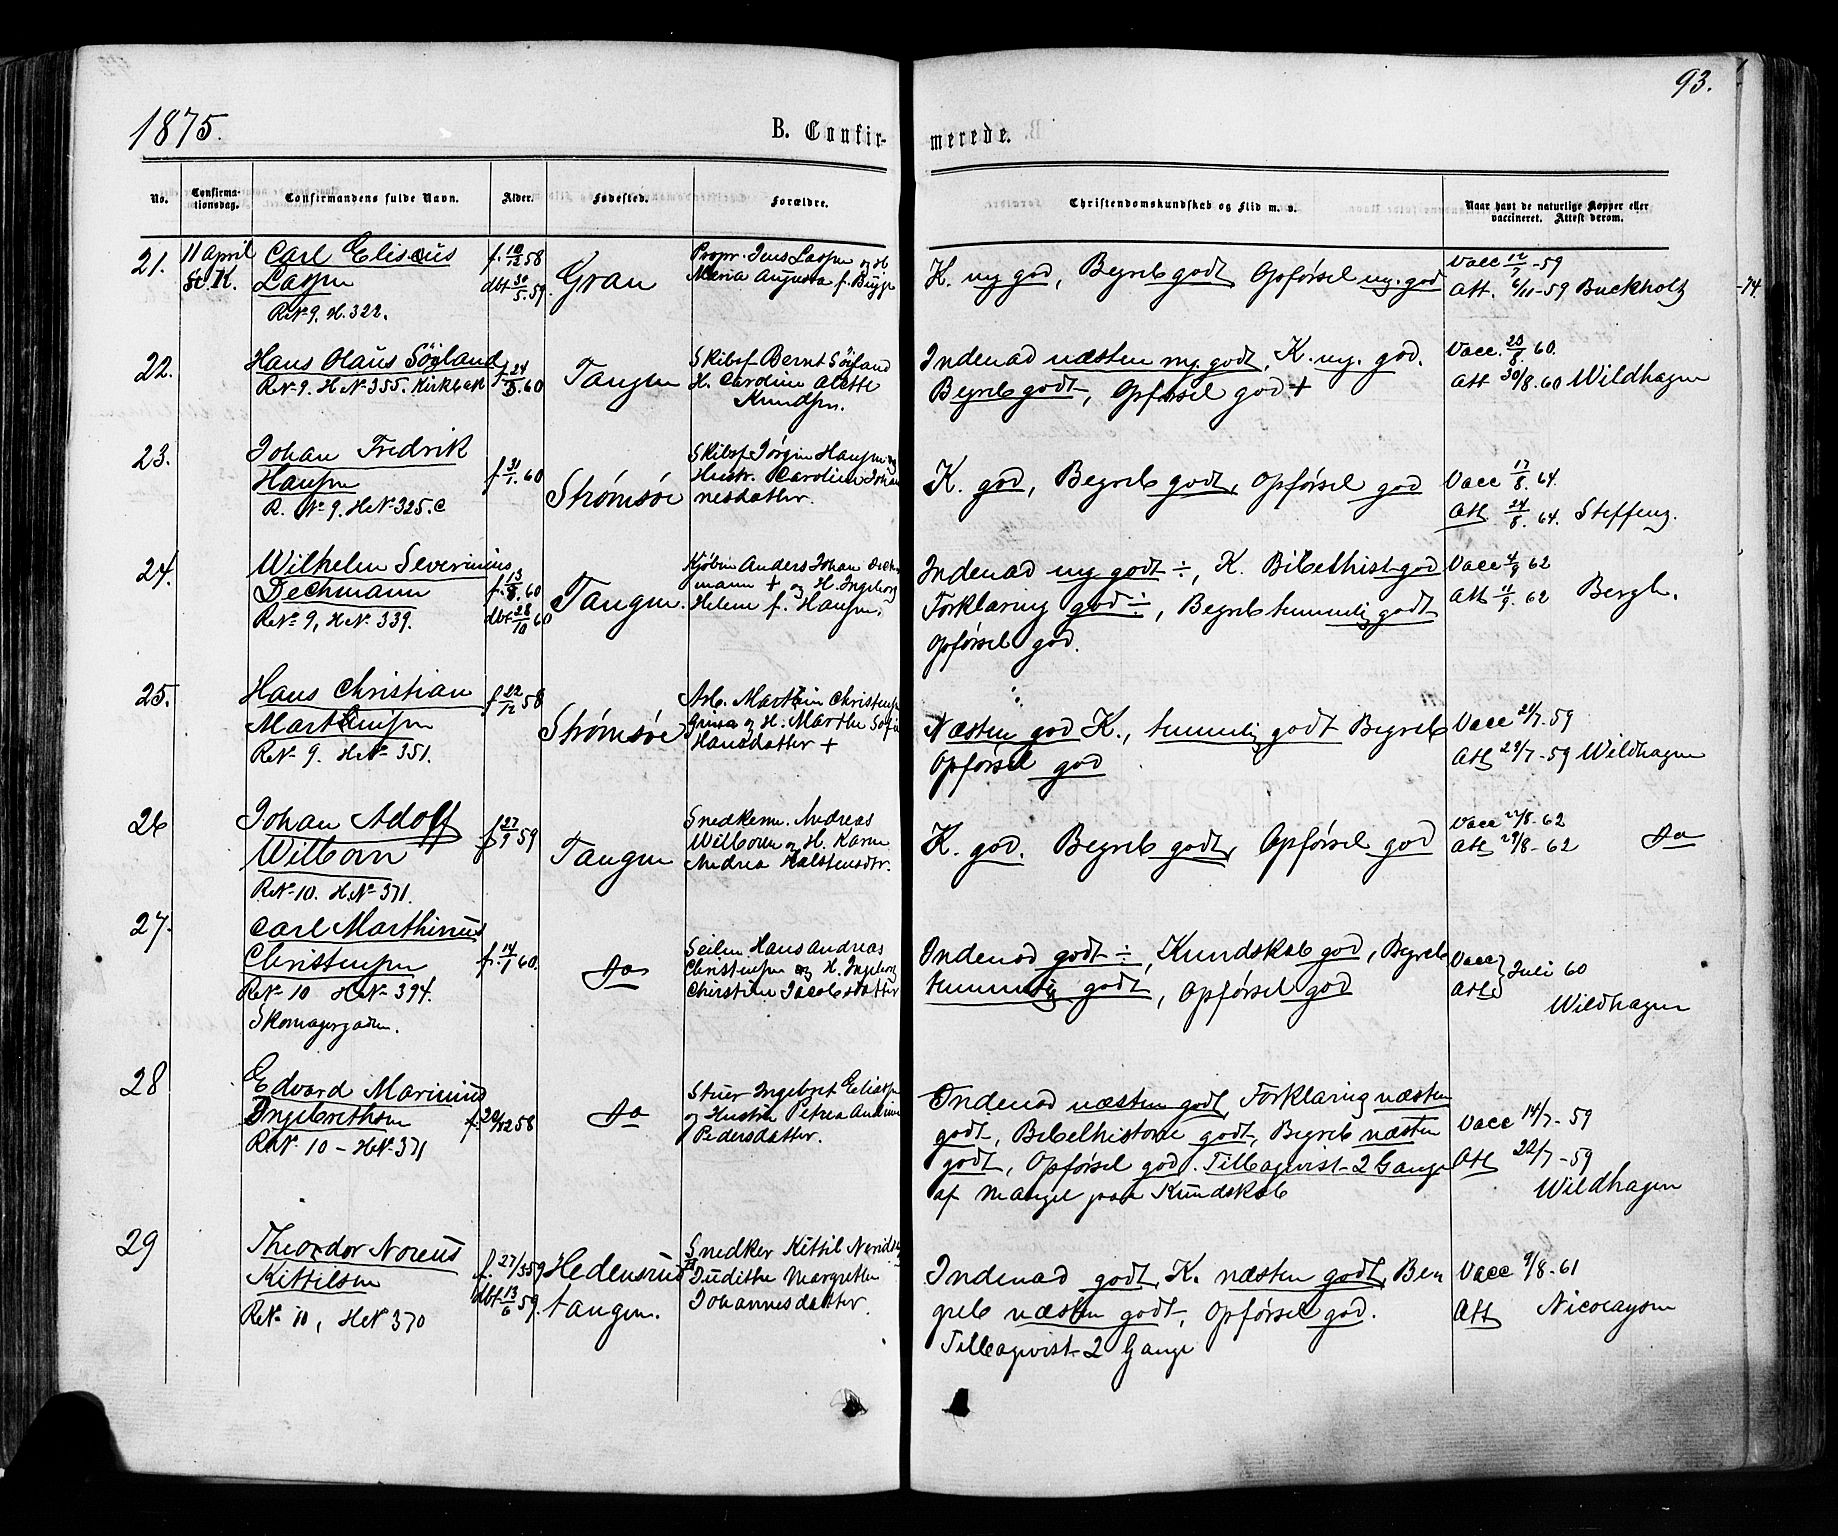 93.
1875.
B. Confir-
merede.
No.
Confirma-
tionsdag.
Confirmandens fulde Navn.
Alder.
Fødested.
Forældre.
Christendomskundskab og Flid m. v.
Naar havt de naturlige Kopper eller
vaccineret. Attest derom.
21.
11 April
St. K.
Carl Elisæus
Lassen
R.No 9. H. 322.
f. 10/12 58
dbt 30/5. 59.
Gran
Propr. Jens Lassen og H.
Maria Augusta f. Bugge
K. mg god, Begreb godt, Opførsel mg. god
Vacc 12/7 -59
Att. 6/11-59 Buckholz
-74.
22.
Hans Olaus Söyland
R.No 9. H.No 355. Kirkbak
f. 24/5 60
Tangen
Skibsf Bernt Söyland
H. Caroline Alette
Knudsen.
Indenad næsten mg godt, K. mg. god.
Begreb godt, Opførsel god +
Vacc. 23/8. 60.
Att 30/8. 60 Wildhagen
23.
Johan Fredrik
Hansen
R. No 9. H.No 325. C
f. 31/1. 60
Strømsøe
Skibsf Jørgen Hansen og
Hustr. Caroline Johan
nesdatter.
K. god, Begreb godt, Opførsel god
Vacc 17/8. 64.
Att 24/8. 64. Steffens.
24.
Wilhelm Severinius
Dechmann
R.No 9, H.No 339.
f. 13/8. 60
dbt 28/10 60
Tangen.
Kjøbm Anders Johan Dech
mann + og H. Ingeborg
Helene f. Hansen.
Indenad mg godt ÷, K. Bibelhist god
Forklaring god ÷, Begreb temmelig godt
Opførsel god.
Vacc 4/9 62
Att 11/9. 62 Bergh.
25.
Hans Christian
Marthinsen
R.No 9. H.No 351.
f. 22/12 58
Strømsøe
Arb. Marthin Christensen
og H. Marthe Sofie
Hansdatter +
Næsten god K., temmelig godt Begreb
Opførsel god
Vacc 21/7. 59
Att 29/7 - 59 Wildhagen
26
Johan Adolf
Wilborn
R.No 10. H.No 371.
f. 27/9 59
Tangen
Snedkerm. Andreas
Wilborn og H. Karen
Andrea Halstensdtr.
K. god. Begreb godt, Opførsel god
Vacc 22/8. 62
Att 29/8 - 62 Do
27.
Carl Marthinius
Christensen
R.No 10 H.No 394.
Skomagergaden.
f. 14/1 60.
Do
Seilm. Hans Andreas
Christensen og H. Ingeborg
Christine Jacobsdatter
Indenad godt ÷, Kundskab god, Begreb
temmelig godt, Opførsel god
Vacc
Att } Juli 60
Wildhagen
28
Edvard Marinius
Ingebrethsen
R.No 10 - H.No 371
f. 20/12 58
Do
Stuer Ingebret Eliassen
og Hustru Petrea Andrine
Pedersdatter.
Indenad næsten godt, Forklaring næsten
godt, Bibelhistorie godt, Begreb næsten
godt, Opførsel god. Tilbagevist 2 Gange
af Mangel paa Kundskab
Vacc 14/7 - 59
Att 22/7 - 59
Wildhagen
29
Theodor Noreus
Kittilsen
R.No 10, H.No 370
f. 27/3 59
dbt 13/6 59.
Hedensrud
tangen.
Snedker Kittil
Judithe Margrethe
Johannesdatter.
Indenad godt, K. næsten godt, Be
greb næsten godt, Opførsel god.
Tilbagevist 2 Gange
Vacc 9/8 - 61
Att Nicolaysen